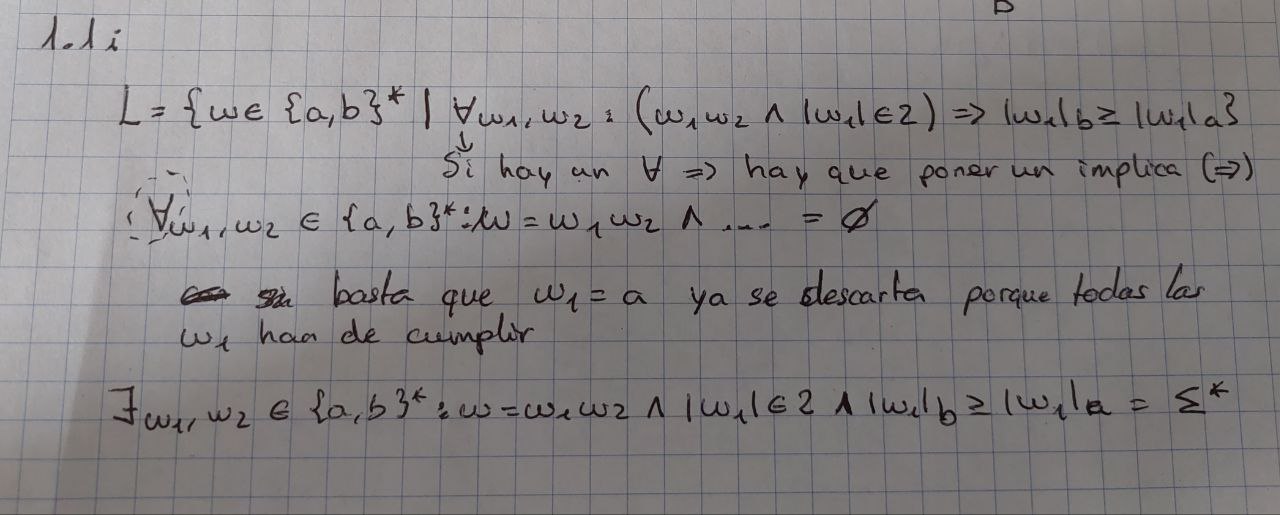 1.1i
L = {w ∈ {a,b}* | ∀w₁,w₂ : (w₁w₂ ∧ |w₁| ∈ 2) => |w₁|b ≥ |w₁|a}
↓
Si hay un ∀ => hay que poner un implica (=>)
∀w₁,w₂ ∈ {a,b}* : w = w₁w₂ ∧ .... = ∅
basta que w₁ = a ya se descarta porque todas las
w₁ han de cumplir
∃w₁,w₂ ∈ {a,b}* : w = w₁w₂ ∧ |w₁| ∈ 2 ∧ |w₁|b ≥ |w₁|a = Σ*